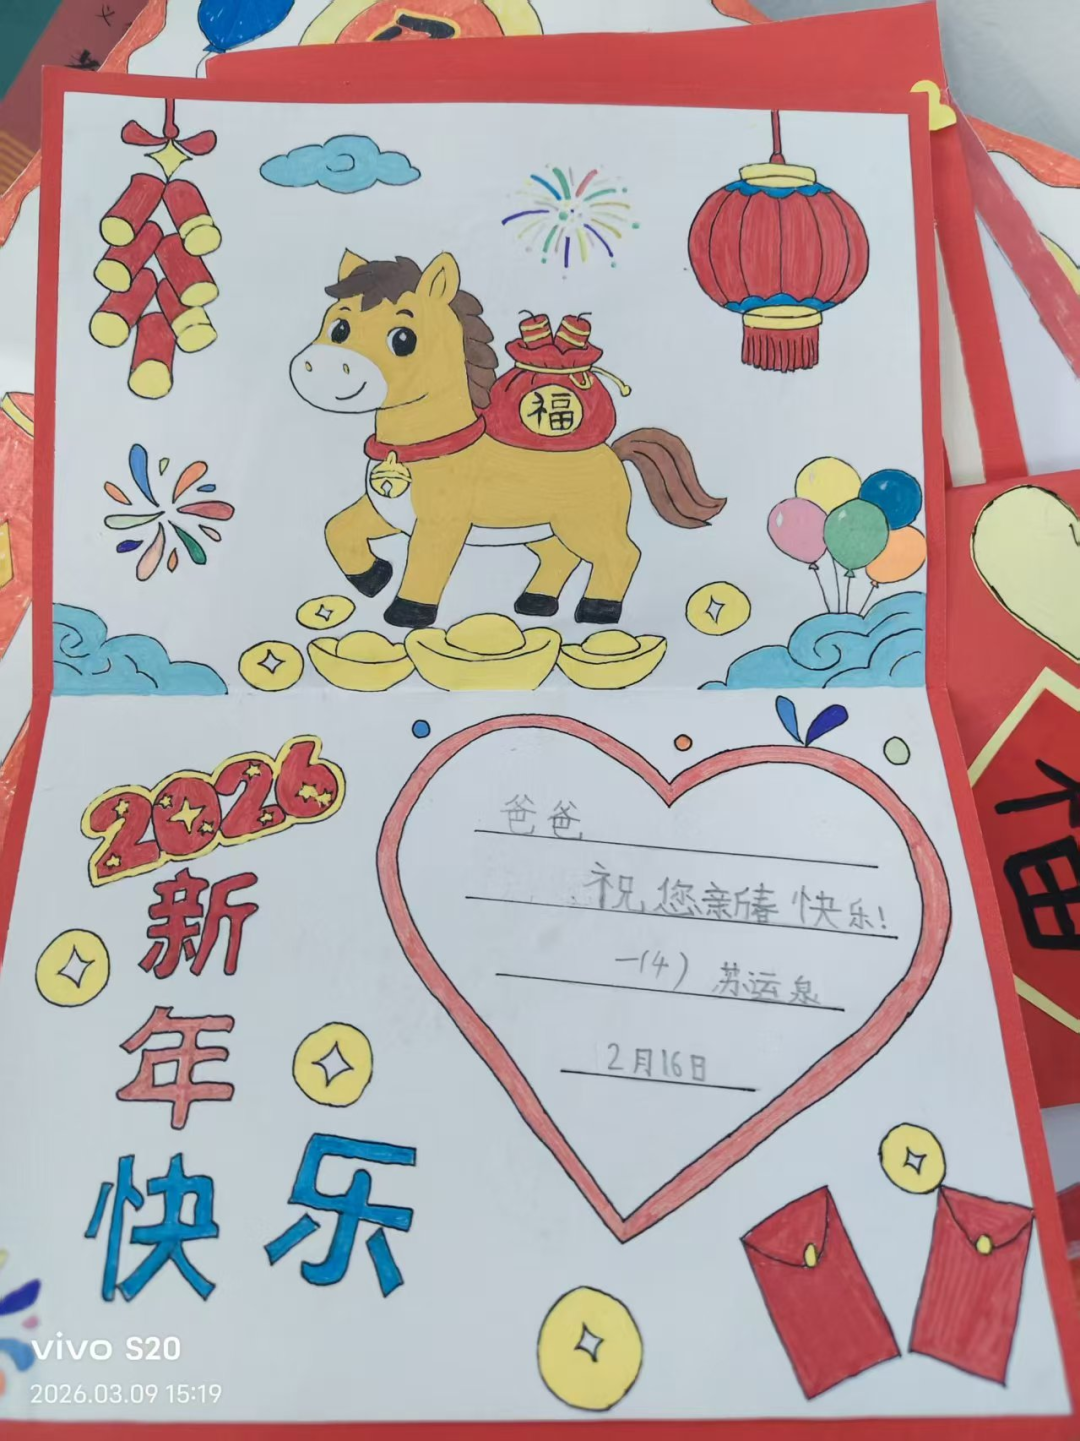 福
2026
新
年
快乐
爸爸
祝您新春快乐!
一(4) 苏运泉
2月16日
福
vivo S20
2026.03.09 15:19